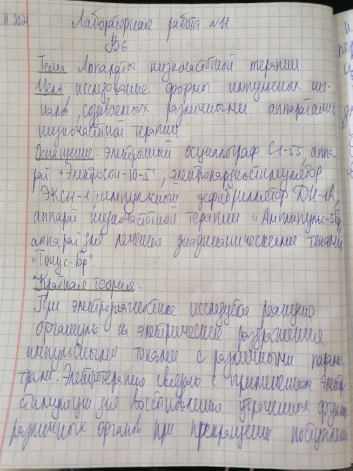 Лабораторная работа №11
В6
Тема Аппараты низкочастотной терапии
Цель исследование формы импульсных сиг-
налов, создаваемых различными аппаратами
низкочастотной терапии
Оснащение: электронный осциллограф С1-55 аппа-
рат "Электросон-10-5"; электрокардиостимулятор
ЭКСН-1; импульсной дефибриллятор ДИ-1А,
аппарат низкочастотной терапии "Амплипульс-5бр"
аппарат для лечения диадинамическими токами
"Тонус-1бр"
Краткая теория.
При электродиагностике исследуется реакцию
организма на электрические раздражения
импульсными токами с различными пара-
трами. Электротерапия связано с применением электро
стимуляции для восстановления утраченной
различных органов при прекращении поступления